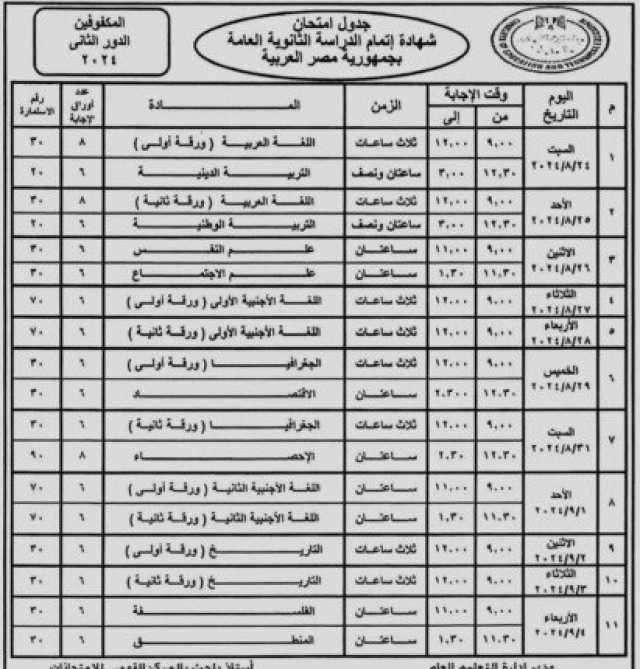 جدول امتحان
شهادة إتمام الدراسة الثانوية العامة
بجمهورية مصر العربية
المكفوفين
الدور الثانى
٢٠٢٤
م اليوم التاريخ وقت الإجابة من إلى الزمن المـــادة عدد أوراق الإجابة رقم الاستمارة
١ السبت ٢٠٢٤/٨/٢٤ ٩,٠٠ ١٢,٠٠ ثلاث ساعات اللغة العربية ( ورقة أولى ) ٨ ٣٠
١٢,٣٠ ٣,٠٠ ساعتان ونصف التربية الدينية ٦ ٢٠
٢ الأحد ٢٠٢٤/٨/٢٥ ٩,٠٠ ١٢,٠٠ ثلاث ساعات اللغة العربية ( ورقة ثانية ) ٨ ٣٠
١٢,٣٠ ٣,٠٠ ساعتان ونصف التربية الوطنية ٦ ٢٠
٣ الاثنين ٢٠٢٤/٨/٢٦ ٩,٠٠ ١١,٠٠ ساعتان علم النفس ٦ ٣٠
١١,٣٠ ١,٣٠ ساعتان علم الاجتماع ٦ ٣٠
٤ الثلاثاء ٢٠٢٤/٨/٢٧ ٩,٠٠ ١٢,٠٠ ثلاث ساعات اللغة الأجنبية الأولى ( ورقة أولى ) ٦ ٧٠
٥ الأربعاء ٢٠٢٤/٨/٢٨ ٩,٠٠ ١٢,٠٠ ثلاث ساعات اللغة الأجنبية الأولى ( ورقة ثانية ) ٦ ٧٠
٦ الخميس ٢٠٢٤/٨/٢٩ ٩,٠٠ ١٢,٠٠ ثلاث ساعات الجغرافيا ( ورقة أولى ) ٦ ٣٠
١٢,٣٠ ٢,٣٠ ساعتان الاقتصاد ٦ ٣٠
٧ السبت ٢٠٢٤/٨/٣١ ٩,٠٠ ١٢,٠٠ ثلاث ساعات الجغرافيا ( ورقة ثانية ) ٦ ٣٠
١٢,٣٠ ٢,٣٠ ساعتان الإحصاء ٨ ٩٠
٨ الأحد ٢٠٢٤/٩/١ ٩,٠٠ ١١,٠٠ ساعتان اللغة الأجنبية الثانية ( ورقة أولى ) ٦ ٧٠
١١,٣٠ ١,٣٠ ساعتان اللغة الأجنبية الثانية ( ورقة ثانية ) ٦ ٧٠
٩ الاثنين ٢٠٢٤/٩/٢ ٩,٠٠ ١٢,٠٠ ثلاث ساعات التاريخ ( ورقة أولى ) ٦ ٣٠
١٠ الثلاثاء ٢٠٢٤/٩/٣ ٩,٠٠ ١٢,٠٠ ثلاث ساعات التاريخ ( ورقة ثانية ) ٦ ٣٠
١١ الأربعاء ٢٠٢٤/٩/٤ ٩,٠٠ ١١,٠٠ ساعتان الفلسفة ٦ ٣٠
١١,٣٠ ١,٣٠ ساعتان المنطق ٦ ٣٠